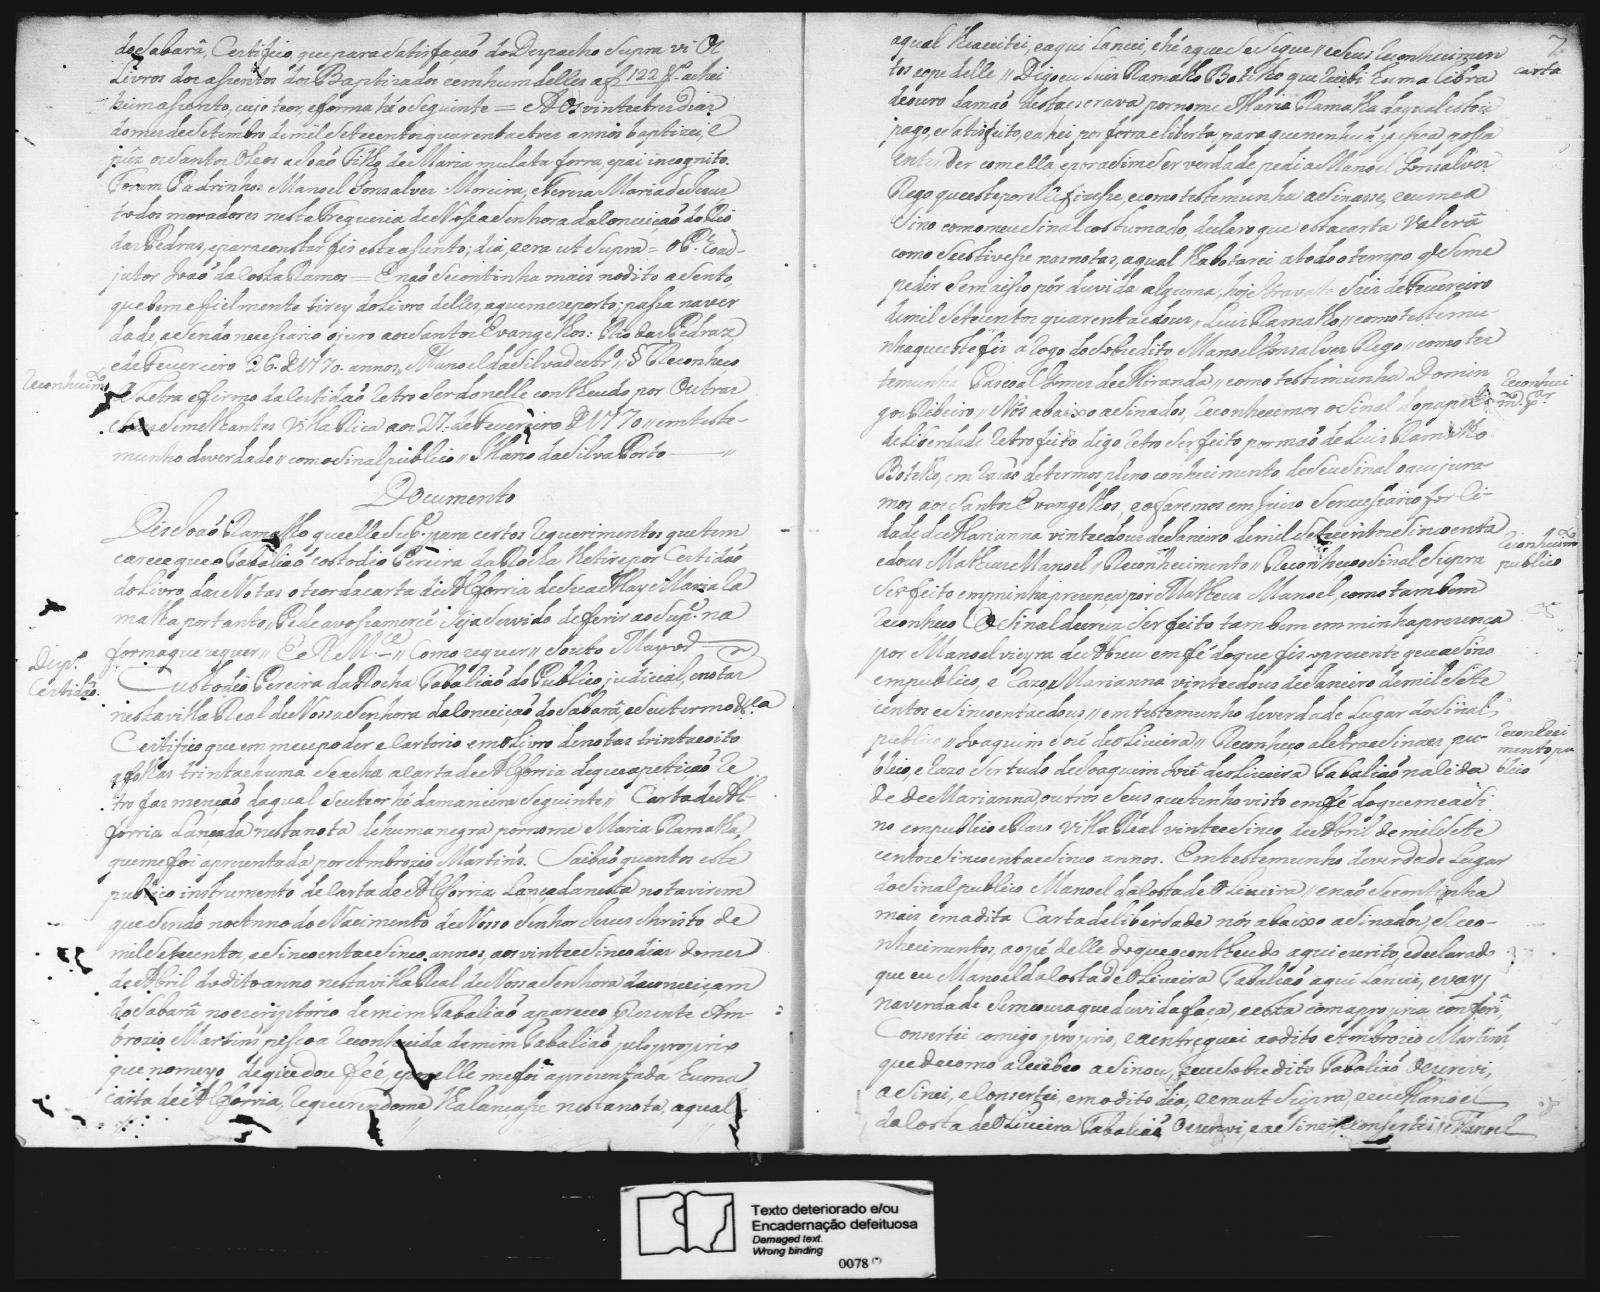 do Sabará, Certifico, que para satisfação do Despacho Supra vi os
Livros dos aSentos dos Baptizados eemhum delles a f 122 vº achei
hum aSento, cujo teor, eforma hé oseguinte = Aos vinte etres dias
do mes de Setembro de mil Setecentos quarenta etres annos baptizei, e
pûz os Santos Oleos aJoão Filho de Maria mulata forra, epai incognito.
Foram Padrinhos Manoel Gonsalves Moreira, eTereza Maria de Jesus
todos moradores nesta Freguesia de Nossa Senhora da Conceição do Rio
das Pedras, epara constar fis este aSento; dia, eera ut Supra = o Pe. Coad-
jutor João da Costa Ramos = Enaõ Secontinha mais nodito aSento,
que bem efielmente tirey do Livro delles, aquemereporto; passa naver
dade, eSendo necessario ojuro aos Santos Evangelhos: Rio das Pedras,
e de Fevereiro 26. de 1770. annos, Manoel da Silva de // Reconheco
Reconhecimto
a Letra efirma da Certidaõ Retro Ser do nelle contheudo por Outras
Semelhantes Villa Rica aos 27. de Fevereiro de 1770 // emteste-
munho deverdade // com oSinal publico // Mario da Silva Porto //
Documento
Dis Joaõ Ramalho que elle Supe. para certos Requerimentos que tem
carece que o Tabaliaõ Costodio Pereira da Rocha lhetire por Certidaõ
do Livro das Notas oteor da carta de Alforria de Sua May Maria Ra
malha portanto, Pede avossa merce Seja Servido deferir ao Supe. na
forma que requer // E R M.ce // Como requer // Souto Mayor
Despº.
Certidaõ.
Custodio Pereira da Rocha Tabaliaõ do Publico, judicial, enotas
nesta villa Real de Nossa Senhora da Conceição do Sabará, eSeu termo &.a
Certifico que em meu poder eCartorio em o Livro denotas trinta eoito
a folhas trinta ehuma Seacha a Carta de Alforria de que apetiçaõ Re
tro fas mençaõ daqual Seu teor hé da maneira Seguinte // Carta de Al-
forria Lançada nesta nota de huma negra por nome Maria Ramalha,
que me foi apresentada por Ambrozio Martins. Saibaõ quantos este
publico instrumento de Carta de Alforria Lançada nesta nota virem
que Sendo no Anno do Nacimento de Nosso Senhor Jesus Christo de
mil Setecentos, eSincoenta eSinco annos, aos vinte eSinco dias do mes
de Abril do dito anno nesta villa Real de Nossa Senhora da Conceiçam
do Sabará no escriptorio de mim Tabaliaõ apareceo Prezente Am-
brozio Martins peSsoa reconhecida de mim Tabaliaõ pelo proprio
que nomeyo de que dou fée, epor elle me foi apresentada huma
carta de Alforria, Requerendome lha lançase nesta nota, aqual
7
aqual lhe aceitei, eaqui Lancei, ehé aque Se Segue // eSeus reconhecimen
tos eope delle // Digo eu Luis Ramalho Botelho que recebi huma Libra
carta
de ouro da maõ desta escrava por nome Maria Ramalha daqual estou
pago, eSatisfeito, ea hei por forra eliberta, para que nenhuã pessoa possa
entender com ella, epor asim Ser verdade pedi a Manoel Gonsalves
Rego que este por elle fizesse, ecomo testemunha aSinasse, eeumea
Sino com omeu Sinal costumado, declaro que esta carta valerá
como Seestivesse nas notas, aqual lha botarei atodo otempo q Seme
pedir Sem nisso por duvida alguma; hoje Seis de Fevereiro
de mil Setecentos quarenta edous // Luis Ramalho // como testemu-
nha que este fis a rogo do Sobredito Manoel Gonsalves Rego // como tes
temunha Pascoal Gomes de Miranda // como testemunha Domin
gos Ribeiro // Nôs abaixo aSinados, reconhecemos oSinal do papel
Reconheci
mto. par.
de Liberdade Retro feito digo retro Ser feito por maõ de Luis Ramalho
Botelho, em razaõ de termos pleno conhecimento de Seu Sinal o que jura
mos aos Santos Evangelhos, eofaremos em Juizo Senecessario for Ci-
dade de Marianna vinte edous de Janeiro de mil Setecentos eSincoenta
edous Matheus Manoel // Reconhecimento // Reconheco oSinal Supra
Reconhecimto
publico
Ser feito em minha prezença por Matheus Manoel, como tambem
Reconheco OSinal de cruz Ser feito tambem em minha prezenca
por Manoel vieyra de Abreu em fé do que fis oprezente que aSino
em publico, e Razo, Marianna vinte edous de Janeiro de mil Sete
centos eSincoenta edous // em testemunho de verdade Lugar do Sinal
publico // Joaquim José de Oliveira // Reconheco a letra eSinaes pu-
Reconheci
mento pu
blico
blico, eRazo Ser tudo de Joaquim José de Oliveira Tabaliaõ na Cida
de de Marianna, outros Seus que tenho visto em fé do que me aSi
no em publico eRazo Villa Real vinte eSinco de Abril de mil Sete
centos eSincoenta eSinco annos. Em testemunho de verdade Lugar
do Sinal publico Manoel da Costa de Oliveira // enaõ Secontinha
mais em adita Carta de liberdade nôs abaixo aSinados, eReco-
nhecimentos, ao pé delle do que o contheudo aqui escrito, edeclarado
que eu Manoel da Costa de Oliveira Tabaliaõ aqui Lancei, evay
na verdade Sem couza que duvida faça, eesta com a propria conferi,
Consertei comigo proprio, ea entreguei ao dito Ambrozio Martins,
que de como a Recebeo aSinou, eeu Sobredito Tabaliaõ Oescrevi,
aSinei, eConsertei, em o dito dia, eera ut Supra, eeu Manoel
da Costa de Oliveira Tabaliaõ Oescrevi, eaSinei, eConsertei // Manoel
Texto deteriorado e/ou
Encadernação defeituosa
Damaged text.
Wrong binding
0078 (*)